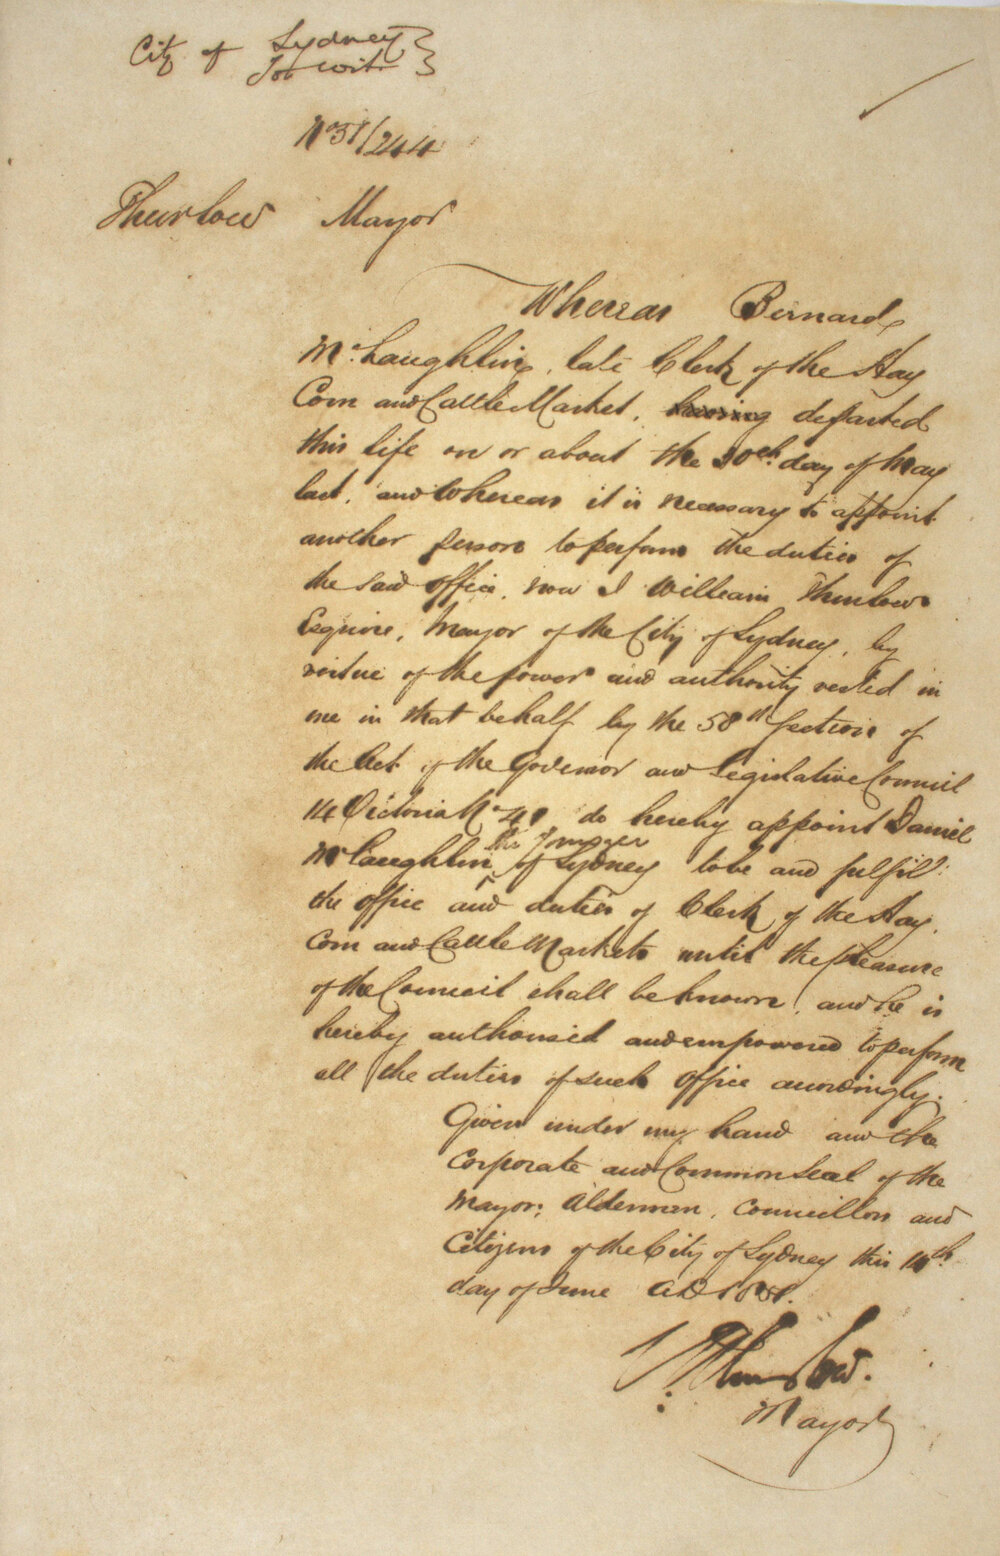 City of Sydney }
To wit }
No 51/244
Thurlow Mayor
Whereas Bernard
McLaughlin, late Clerk of the Hay
Corn and Cattle Market, having departed
this life on or about the 30th day of May
last, and whereas it is necessary to appoint
another person to perform the duties of
the said office, now I William Thurlow
Esquire, Mayor of the City of Sydney, by
virtue of the power and authority vested in
me in that behalf by the 58th Section of
the Act of the Governor and Legislative Council
14 Victoria No 41 do hereby appoint Daniel
the Younger
McLaughlin ^ of Sydney to be and fulfil
the office and duties of Clerk of the Hay,
Corn and Cattle Markets until the pleasure
of the Council shall be known, and he is
hereby authorised and empowered to perform
all the duties of such office accordingly.
Given under my hand and the
Corporate and Common Seal of the
Mayor, Aldermen, Councillors and
Citizens of the City of Sydney this 14th
day of June AD 1851.
W Thurlow.
Mayor